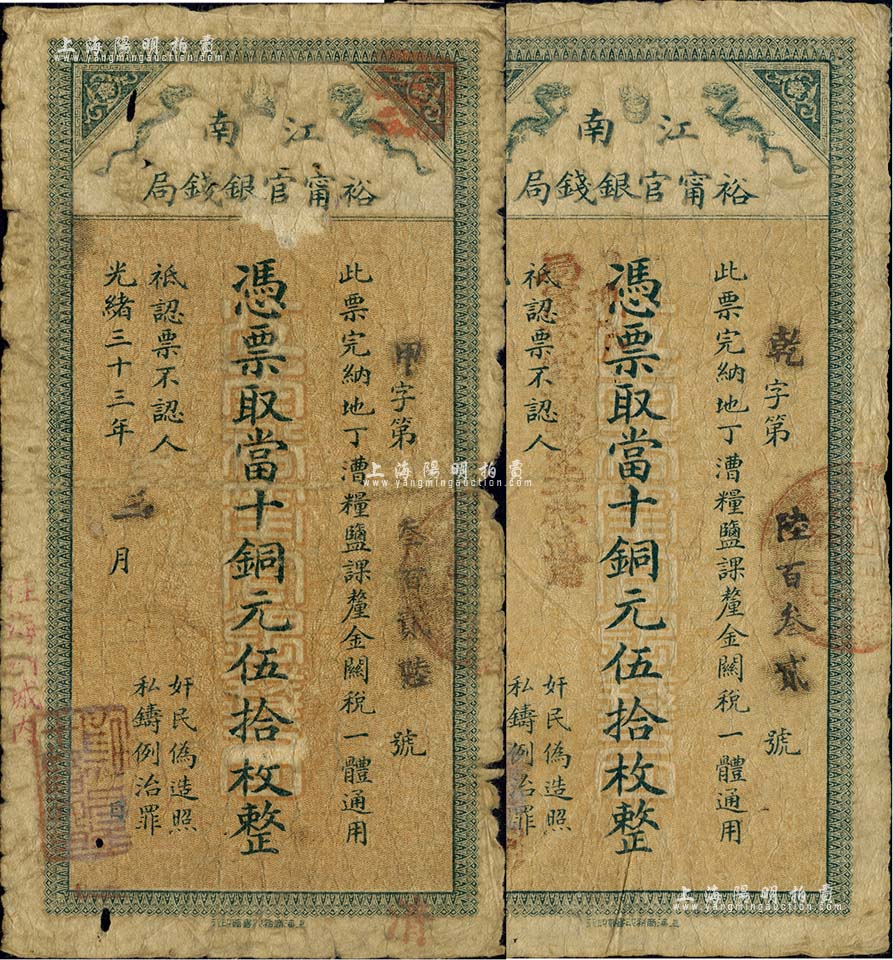 上海陽明拍賣
www.yangmingauction.com
江南
裕甯官銀錢局
甲字第叁百貳陸號
此票完納地丁漕糧鹽課釐金關稅一體通用
憑票取當十銅元伍拾枚整
祗認票不認人
奸民偽造照
私鑄例治罪
光緒三十三年 月 日
江南
裕甯官銀錢局
乾字第陸百叁貳號
此票完納地丁漕糧鹽課釐金關稅一體通用
憑票取當十銅元伍拾枚整
祗認票不認人
奸民偽造照
私鑄例治罪
上海陽明拍賣
www.yangmingauction.com
上海陽明拍賣
www.yangmingauction.com